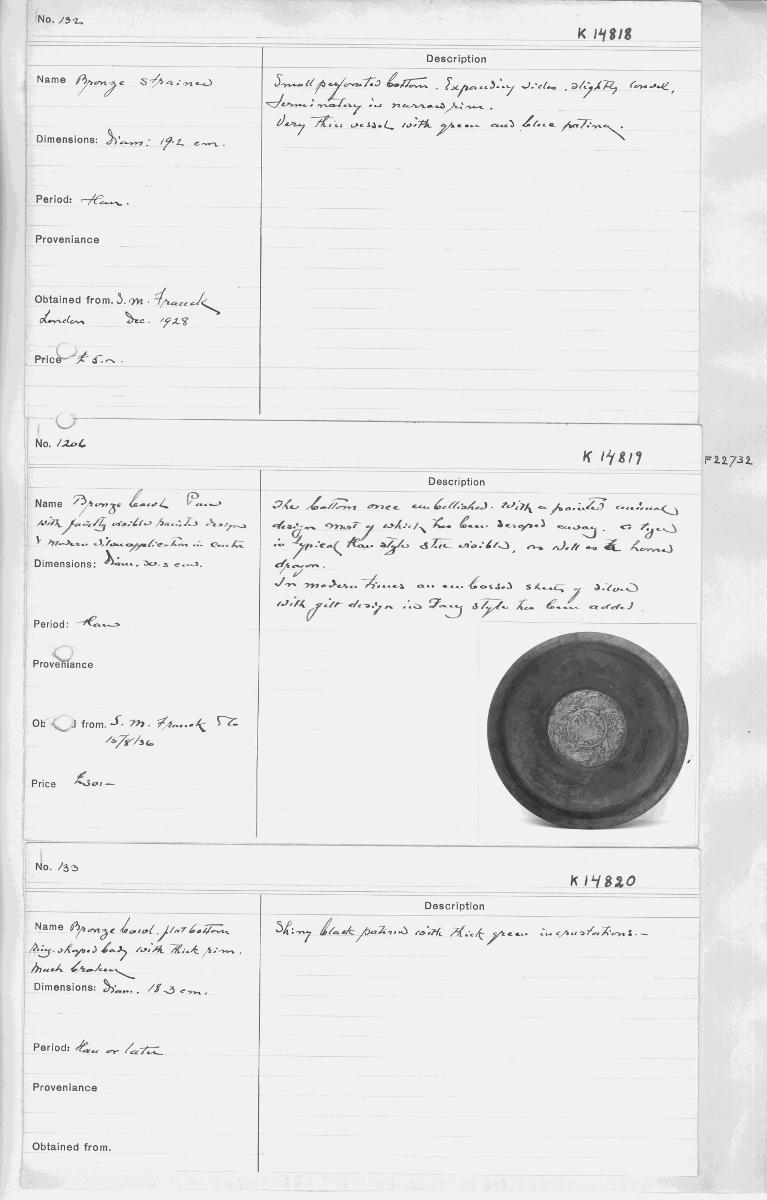 No. 132
K 14818
Description
Name Bronze strainer
Small perforated bottom. Expanding sides, slightly
terminating in narrow rim.
Very thin vessel with green and blue patina.
Dimensions: Diam: 19.2 cm.
Period: Han.
Proveniance
Obtained from. S. M. Franck
London Dec. 1928
Price £ 5.
No. 1206
K 14819
F22732
Description
Name Bronze bowl Pan
with faintly visible painted design
& modern silver application in centre
Dimensions: Diam. cm.
Period: Han
Proveniance
Ob from. S. M. Franck
15/8/36
Price £30:—
The bottom once embellished. With a painted animal
design most of which has been scraped away. a tiger
in typical Han style still visible, as well as horned
dragon.
In modern times an embossed sheet of silver
with gilt design in Tang style has been added.
No. 133
K 14820
Description
Name Bronze bowl. flat bottom
Ring-shaped body with thick rim.
Much broken
Dimensions: Diam. 18.3 cm.
Period: Han or later
Proveniance
Obtained from.
Shiny black patina with thick green incrustations.—